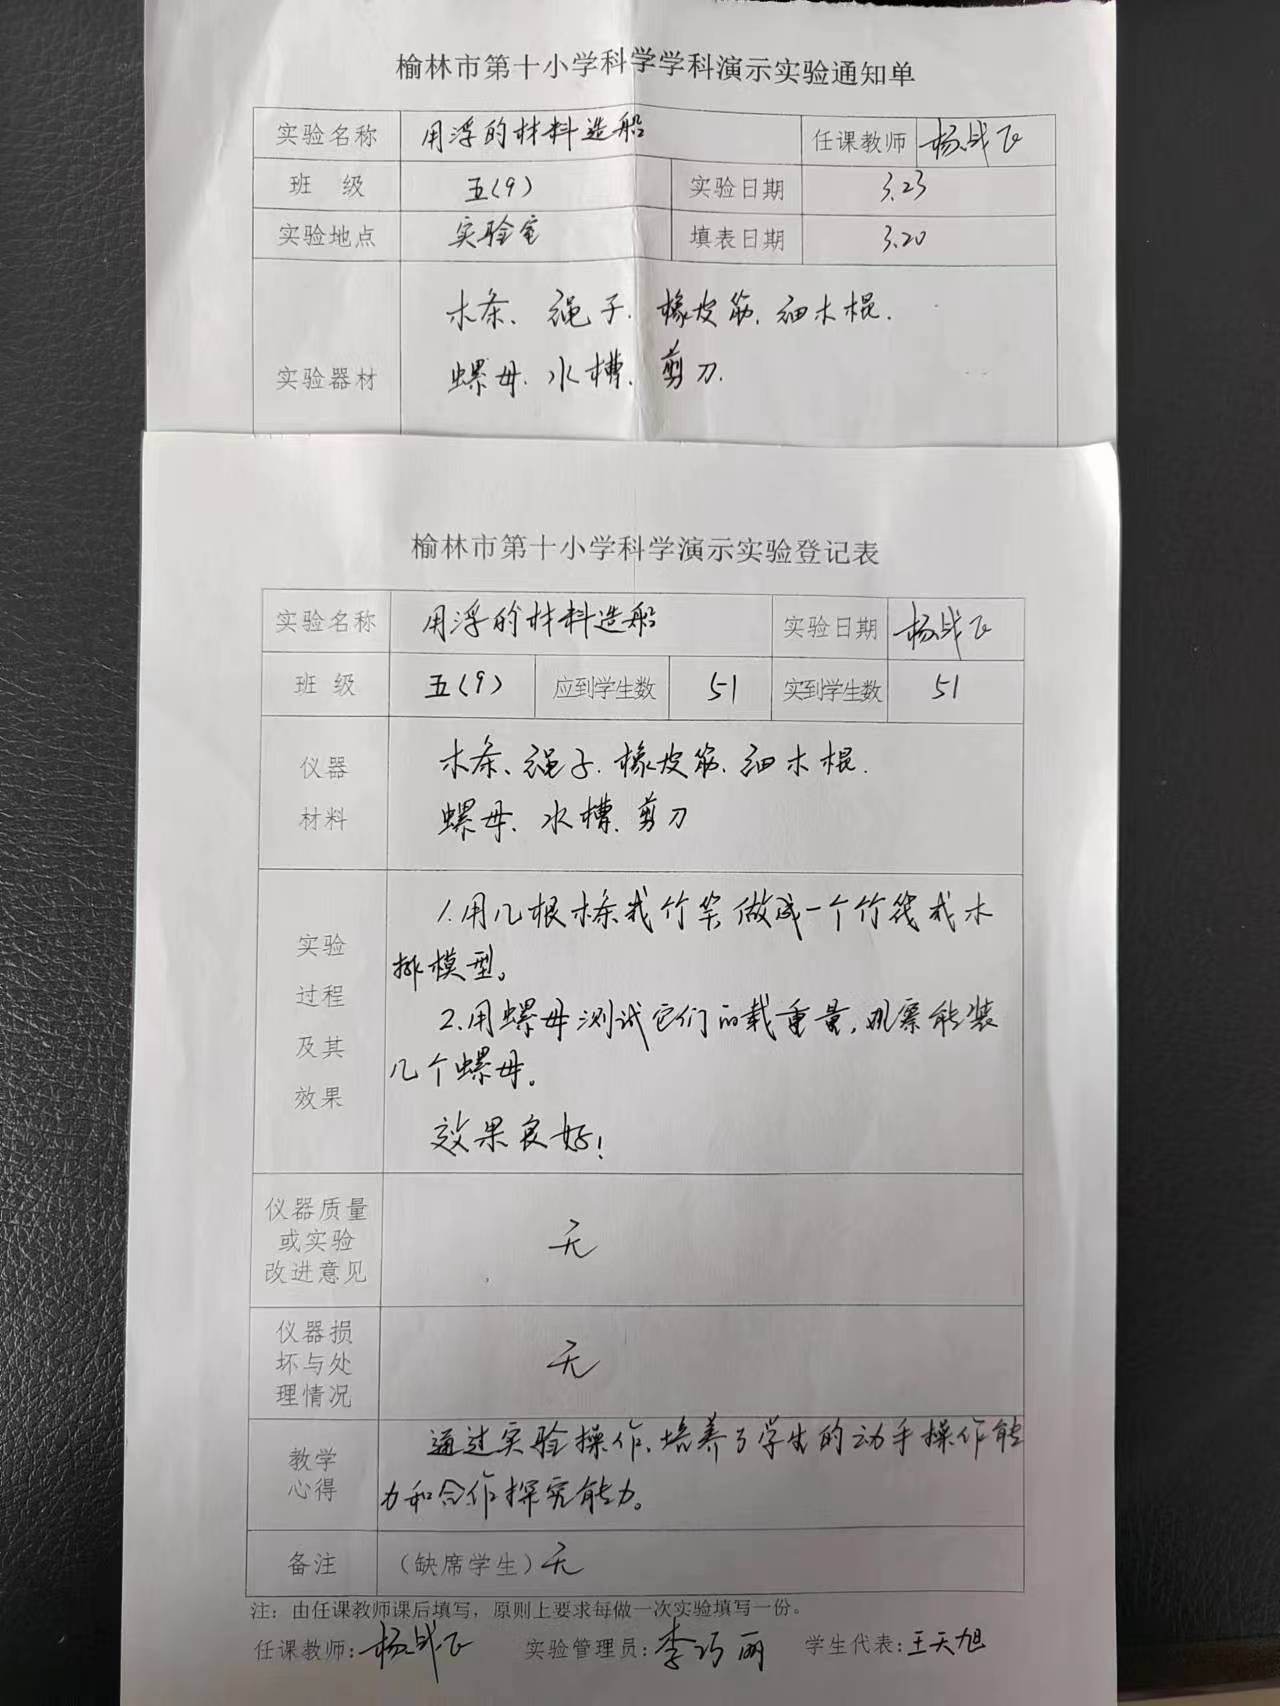 榆林市第十小学科学学科演示实验通知单
实验名称 用浮的材料造船 任课教师 杨战飞
班 级 五(9) 实验日期 3.23
实验地点 实验室 填表日期 3.20
木条、绳子、橡皮筋、细木棍.
实验器材 螺母、水槽、剪刀.
榆林市第十小学科学演示实验登记表
实验名称 用浮的材料造船 实验日期 杨战飞
班 级 五(9) 应到学生数 51 实到学生数 51
仪器 木条、绳子、橡皮筋、细木棍.
材料 螺母、水槽、剪刀
1.用几根木条或竹竿做成一个竹筏或木
实验 排模型。
过程 2.用螺母测试它们的载重量,观察能装
及其 几个螺母。
效果 效果良好!
仪器质量
或实验 无
改进意见
仪器损
坏与处 无
理情况
教学 通过实验操作、培养了学生的动手操作能
心得 力和合作探究能力。
备注 (缺席学生)无
注:由任课教师课后填写,原则上要求每做一次实验填写一份。
任课教师:杨战飞 实验管理员:李巧丽 学生代表:王天旭